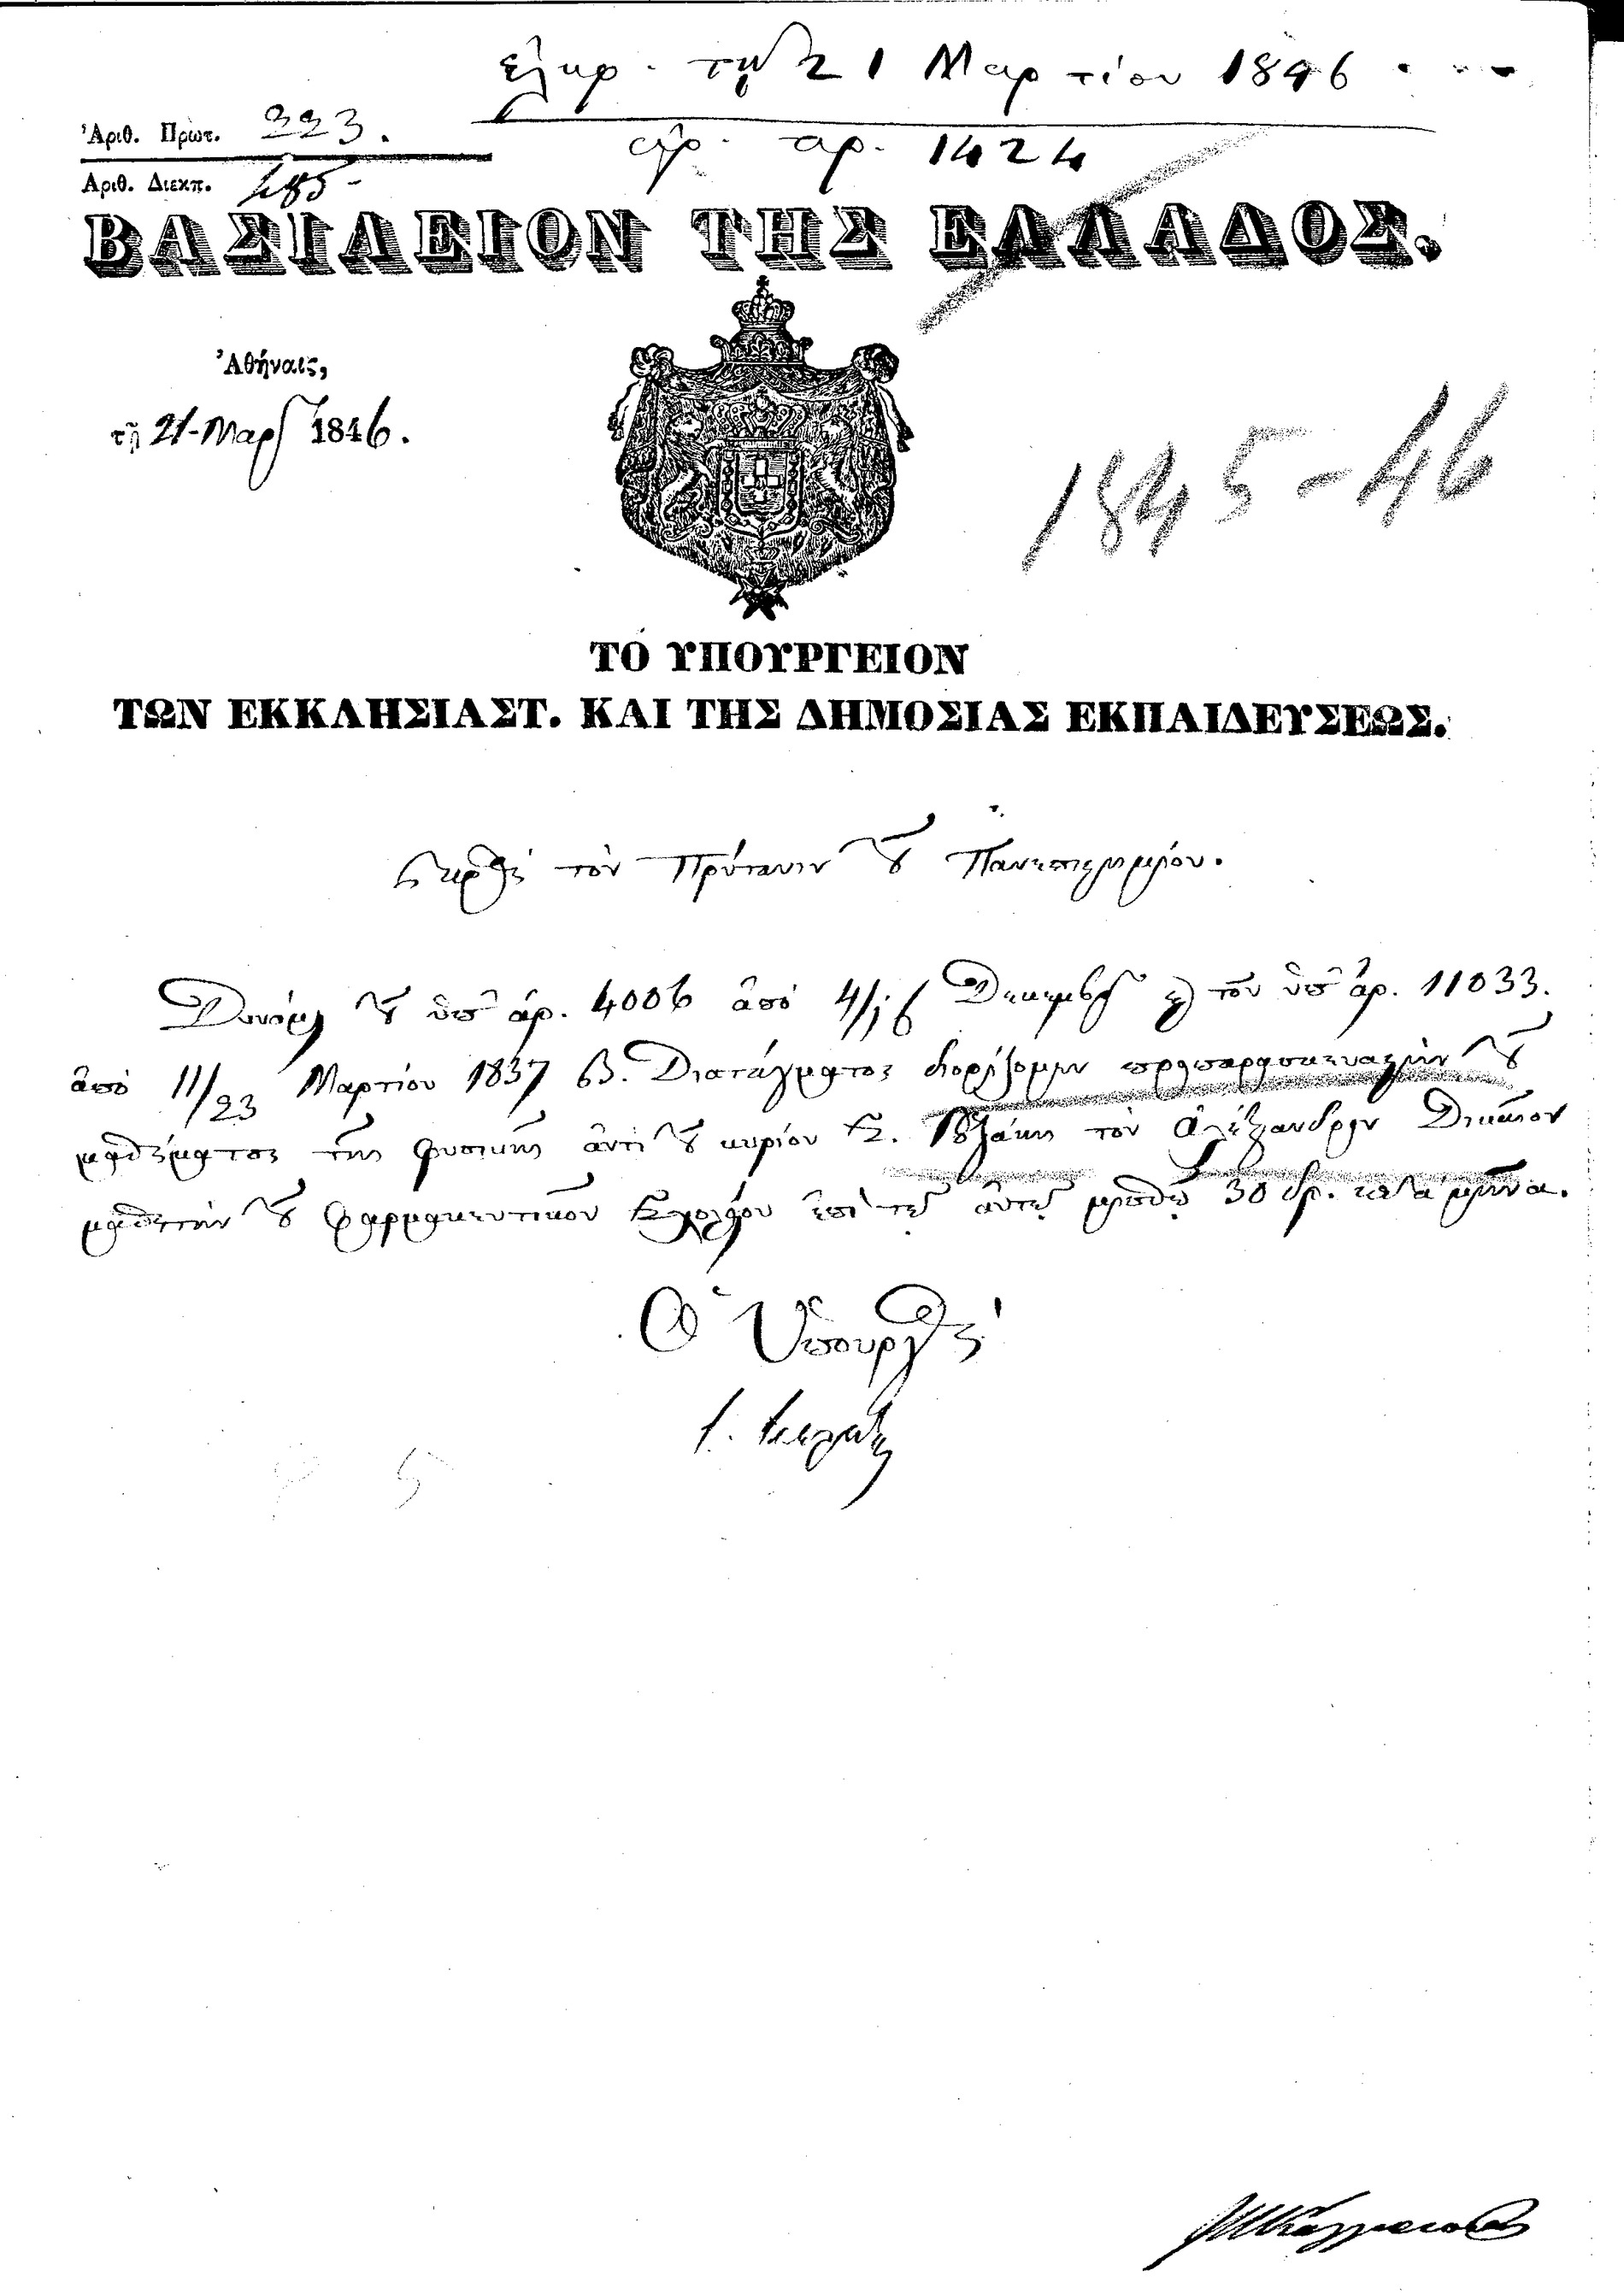 ἐλήφ. τῇ 21 Μαρτίου 1846
ἀρ. 1424
Ἀριθ. Πρωτ. 323.
Ἀριθ. Διεκπ. 485
ΒΑΣΙΛΕΙΟΝ ΤΗΣ ΕΛΛΑΔΟΣ.
Ἀθήναις,
τῇ 21 Μαρτ 1846.
1845-46
ΤΟ ΥΠΟΥΡΓΕΙΟΝ
ΤΩΝ ΕΚΚΛΗΣΙΑΣΤ. ΚΑΙ ΤΗΣ ΔΗΜΟΣΙΑΣ ΕΚΠΑΙΔΕΥΣΕΩΣ.
Πρὸς τὸν Πρύτανιν τοῦ Πανεπιστημίου.
Δυνάμει τοῦ ὑπ' ἀρ. 4006 ἀπὸ 4/16 Δεκεμβρ καὶ τοῦ ὑπ' ἀρ. 11033.
ἀπὸ 11/23 Μαρτίου 1837 Β. Διατάγματος διορίζομεν παρασκευαστὴν τοῦ
μαθήματος τῆς φυσικῆς ἀντὶ τοῦ κυρίου τὸν Ἀλέξανδρον Δικαῖον
μαθητὴν τοῦ Φαρμακευτικοῦ Σχολείου ἐπὶ τῷ αὐτῷ μισθῷ 30 δρ. κατὰ μῆνα.
Ὁ Ὑπουργὸς